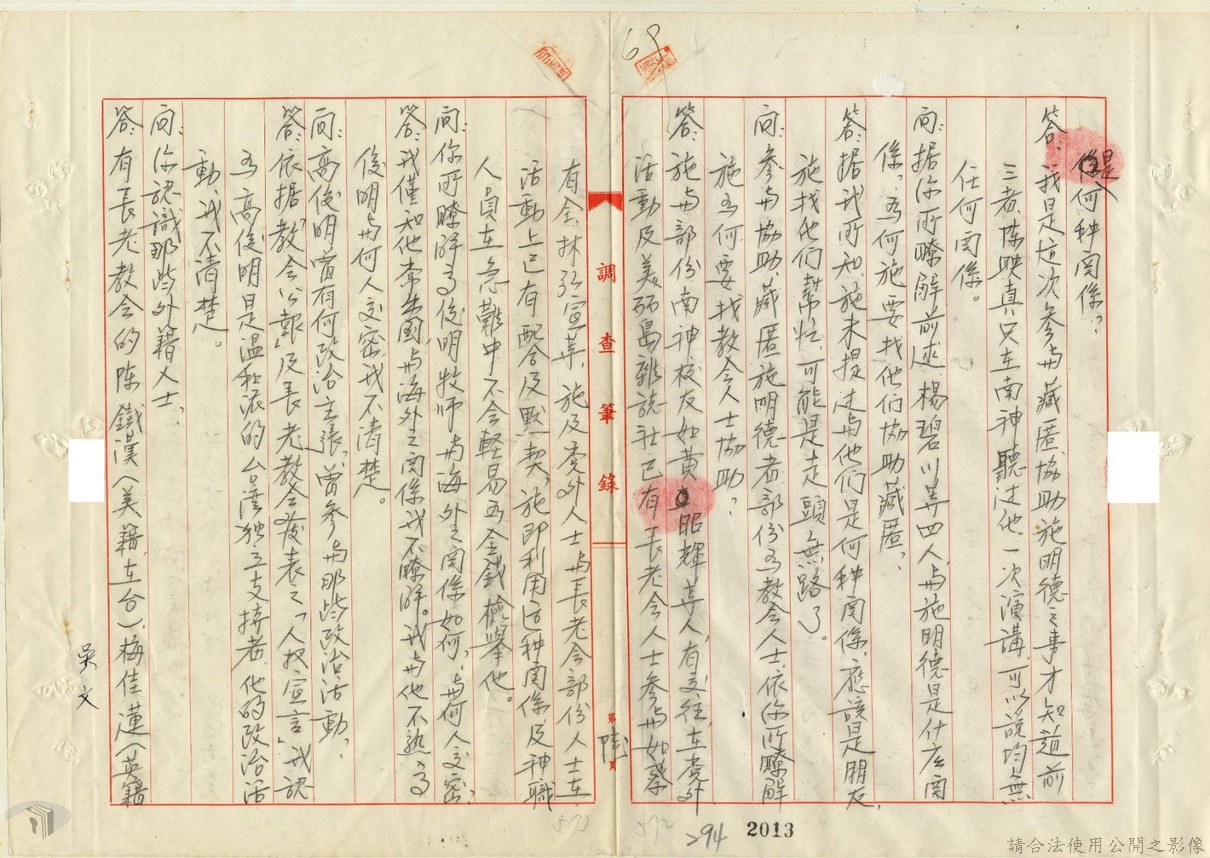 69
是何种関係？
答：我是这次参与藏匿協助施明德之事才知道前
三者，陈映真只在南神聽过他一次演講，可以說均無
任何関係。
问：据你所瞭解前述楊碧川等四人，与施明德是什庅関
係？為何施要找他们協助藏匿？
答：据我所知，施未提过与他们是何种関係，應該是朋友，
施找他们幫忙，可能是走頭無路了。
问：参与協助，藏匿施明德者部份為教会人士，依你所瞭解
施為何要找教会人士協助？
答：施与部份南神校友如黄昭輝等人，有交往，在党外
活動及美麗島雜誌社已有長老会人士参与如蔡
有全、林弘宣等，施及党外人士与長老会部份人士在
活動上已有配合及默契，施即利用这种関係及神職
人員在急難中不会輕易為金錢檢舉他。
问：你所瞭解高俊明牧师与海外之関係如何，与何人交密？
答：我僅知他常出国，与海外之関係我不瞭解。我与他不熟，高
俊明与何人交密我不清楚。
问：高俊明嘗有何政治主張，嘗参与那些政治活動？
答：依据「教会公報」及長老教会發表之「人权宣言」我認
為高俊明是温和派的台湾独立支持者，他的政治活
動，我不清楚。
问：你認識那些外籍人士：
答：有長老教会的陈鐵漢（美籍，在台），梅佳蓮（英籍
調查筆錄
第陸頁
吴文
573
572
294
2013
請合法使用公開之影像